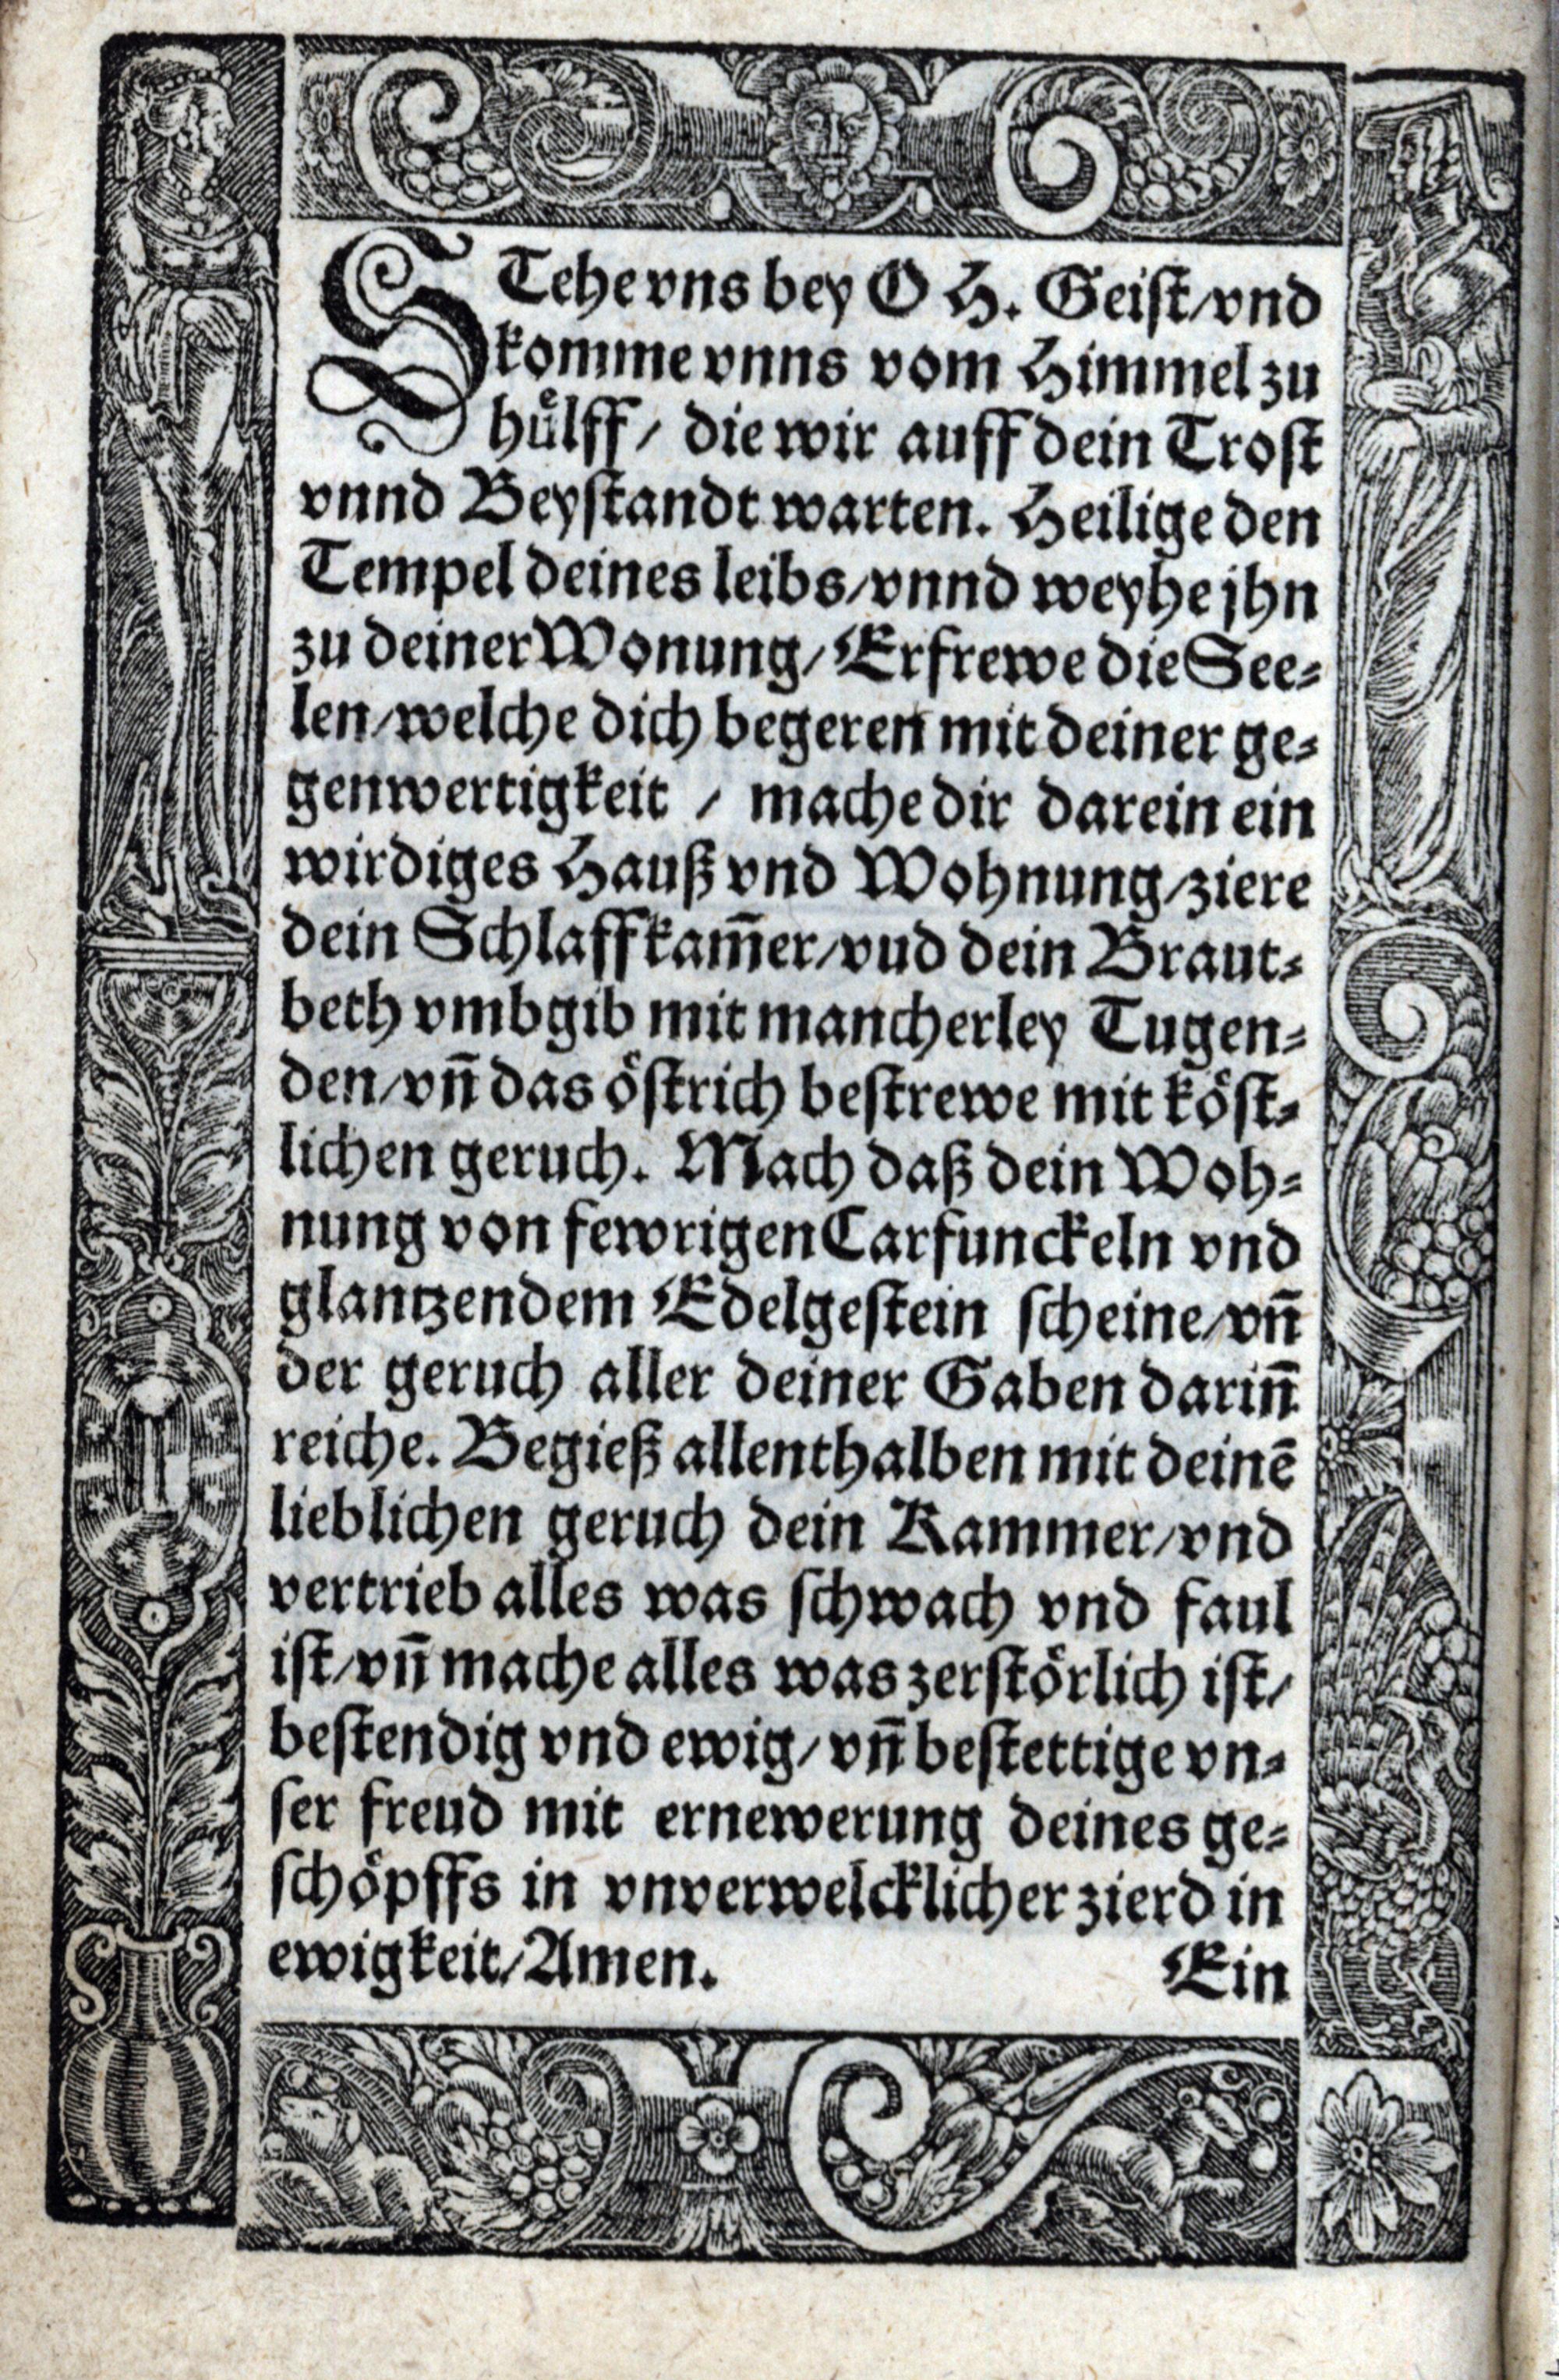 STehe vns bey O H. Geist/vnd
komme vnns vom Himmel zu
huͤlff/ die wir auff dein Trost
vnnd Beystandt warten. Heilige den
Tempel deines leibs/vnnd weyhe jhn
zu deiner Wonung/Erfrewe die See-
len/welche dich begeren mit deiner ge-
genwertigkeit / mache dir darein ein
wirdiges Hauß vnd Wohnung/ziere
dein Schlaffkam̄er/vud dein Braut-
beth vmbgib mit mancherley Tugen-
den/vn̄ das oͤstrich bestrewe mit koͤst-
lichen geruch. Mach daß dein Woh-
nung von fewrigen Carfunckeln vnd
glantzendem Edelgestein scheine/vn̄
der geruch aller deiner Gaben darin̄
reiche. Begieß allenthalben mit deinē
lieblichen geruch dein Kammer/vnd
vertrieb alles was schwach vnd faul
ist/vn̄ mache alles was zerstoͤrlich ist/
bestendig vnd ewig/vn̄ bestettige vn-
ser freud mit ernewerung deines ge-
schoͤpffs in vnverwelcklicher zierd in
ewigkeit/Amen. Ein